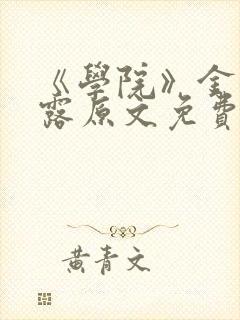 《學院》金
露原文免費
黃青文